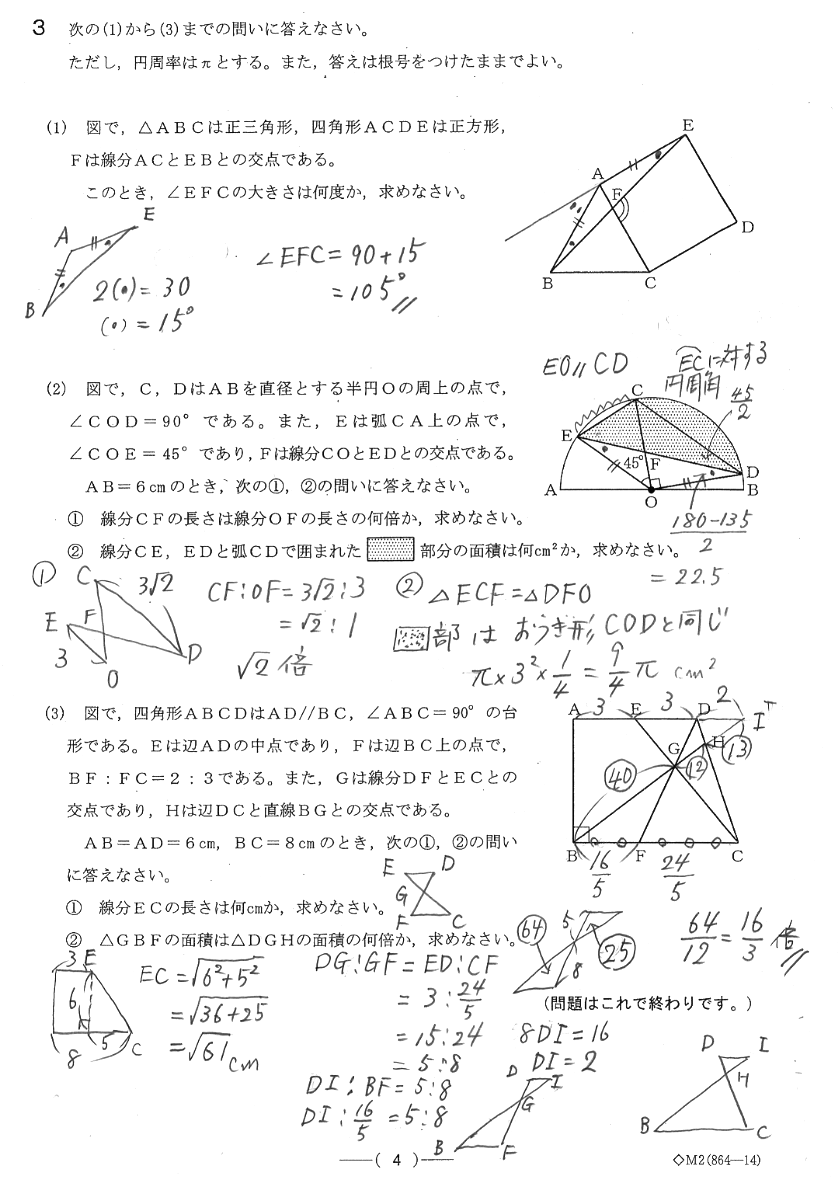 3 次の(1)から(3)までの問いに答えなさい。
ただし，円周率はπとする。また，答えは根号をつけたままでよい。
(1) 図で，△ＡＢＣは正三角形，四角形ＡＣＤＥは正方形，
Ｆは線分ＡＣとＥＢとの交点である。
このとき，∠ＥＦＣの大きさは何度か，求めなさい。
E
A
F
D
B
C
A
E
B
2(•)= 30
(•)= 15°
∠EFC = 90+15
= 105°
(2) 図で，Ｃ，ＤはＡＢを直径とする半円Ｏの周上の点で，
∠ＣＯＤ＝90° である。また，Ｅは弧ＣＡ上の点で，
∠ＣＯＥ＝ 45° であり，Ｆは線分ＣＯとＥＤとの交点である。
ＡＢ＝6cmのとき，次の①，②の問いに答えなさい。
① 線分ＣＦの長さは線分ＯＦの長さの何倍か，求めなさい。
② 線分ＣＥ，ＥＤと弧ＣＤで囲まれた 部分の面積は何cm²か，求めなさい。
EO // CD
ECに対する
円周角
45/2
C
E
45°
F
D
A
O
B
(180-135)/2
= 22.5
①
C
3√2
E
F
3
O
D
CF:OF = 3√2:3
= √2:1
√2倍
② △ECF = △DFO
部は おうぎ形CODと同じ
π×3²×1/4 = 9/4 π cm²
(3) 図で，四角形ＡＢＣＤはＡＤ//ＢＣ，∠ＡＢＣ＝90° の台
形である。Ｅは辺ＡＤの中点であり，Ｆは辺ＢＣ上の点で，
ＢＦ：ＦＣ＝2：3である。また，Ｇは線分ＤＦとＥＣとの
交点であり，Ｈは辺ＤＣと直線ＢＧとの交点である。
ＡＢ＝ＡＤ＝6cm，ＢＣ＝8cmのとき，次の①，②の問い
に答えなさい。
① 線分ＥＣの長さは何cmか，求めなさい。
② △ＧＢＦの面積は△ＤＧＨの面積の何倍か，求めなさい。
A 3 E 3 D 2 I
G
H
40
12
13
B
F
C
16/5
24/5
E D
G
F C
64
5
8
25
64/12 = 16/3 倍
(問題はこれで終わりです。)
3 E
6
8
5
C
EC = √(6²+5²)
= √(36+25)
= √61 cm
DG:GF = ED:CF
= 3:24/5
= 15:24
= 5:8
DI:BF = 5:8
DI:16/5 = 5:8
8DI = 16
DI = 2
D I
G
B F
D I
H
B C
( 4 )
◇M2(864—14)